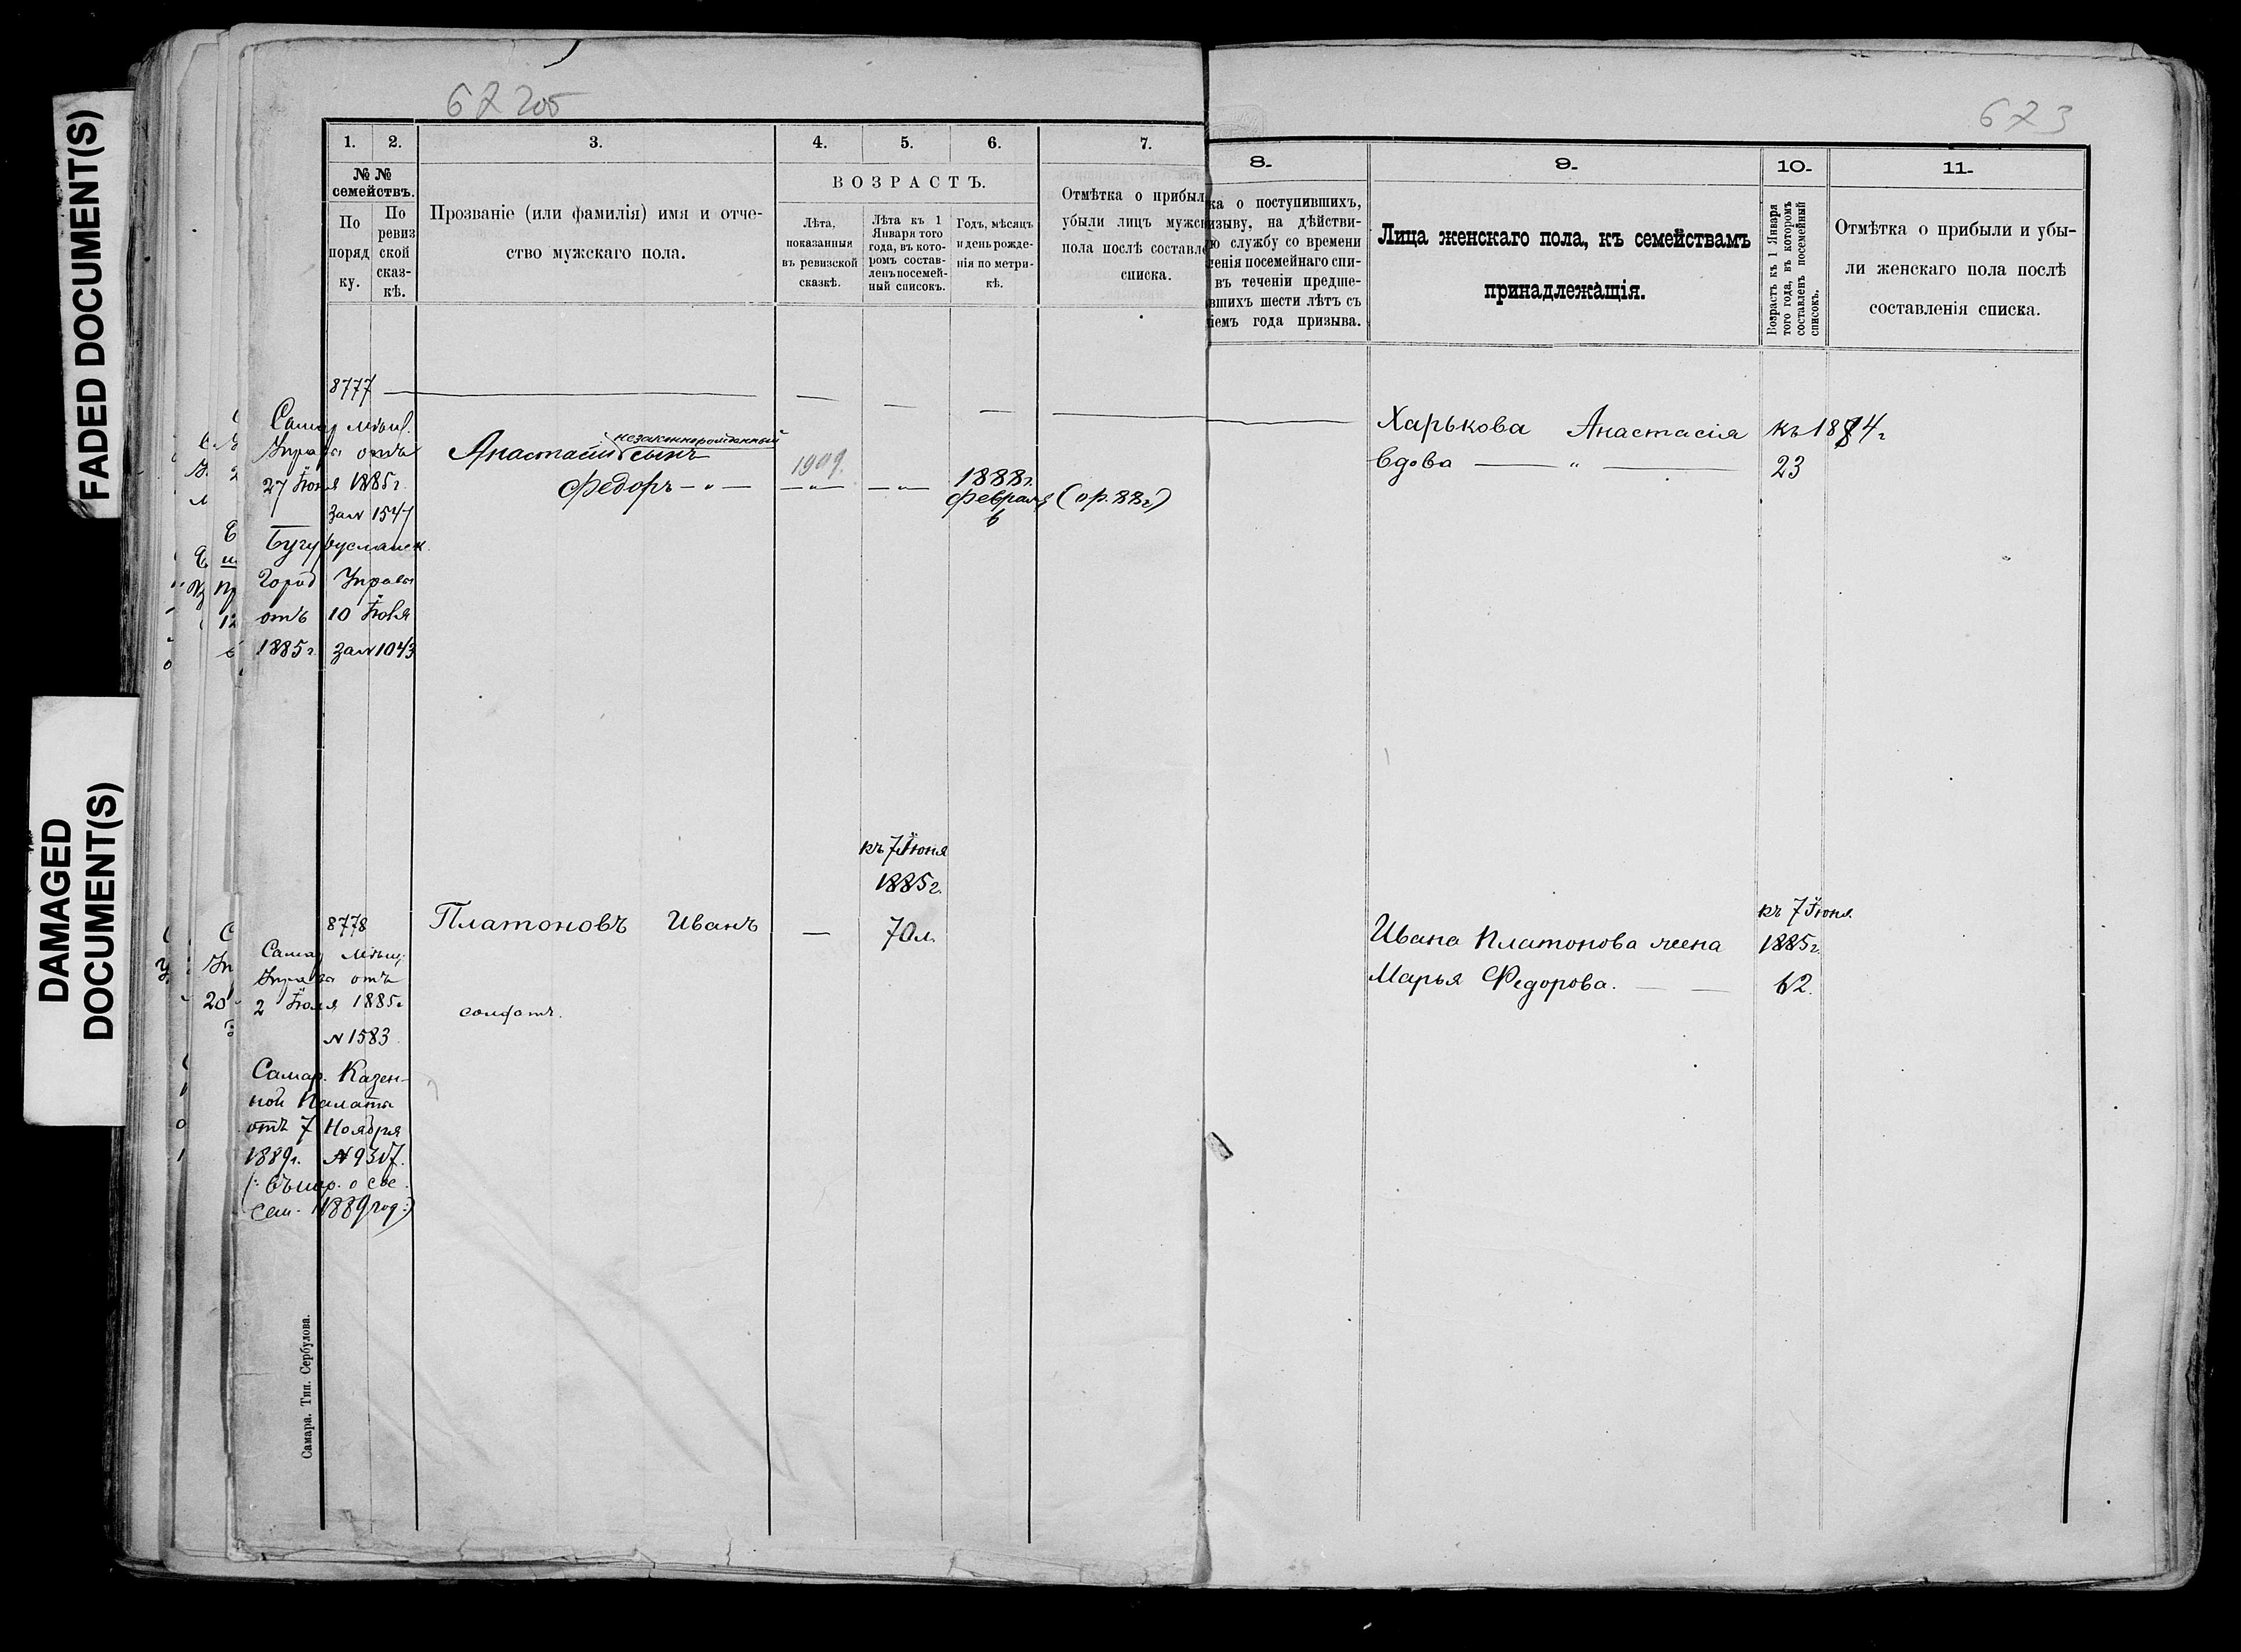 FADED DOCUMENT(S)
DAMAGED
DOCUMENT(S)
67 205
1. 2. 3. 4. 5. 6. 7.
№ №
семействъ.
По
поряд
ку.
По
ревиз
ской
сказ-
кѣ.
Прозваніе (или фамилія) имя и отче-
ство мужскаго пола.
ВОЗРАСТЪ.
Лѣта,
показанныя
въ ревизской
сказкѣ.
Лѣта къ 1
Января того
года, въ кото-
ромъ состав-
ленъ посемей-
ный списокъ.
Годъ, мѣсяцъ
и день рожде-
нія по метри-
кѣ.
Отмѣтка о прибыл
убыли лицъ мужск
пола послѣ составле
списка.
8777
Самар мѣщ.
Управы отъ
27 Іюня 1885 г.
за № 1547
Бугурусланск.
Город Управы
отъ 10 Іюня
1885 г. за № 1043
незаконнорожденный
Анастасіи сынъ
Федоръ — " —
1909.
1888 г.
Февраля (ор. 88 г)
6
къ 7 Іюня
1885 г.
8778
Платоновъ Иванъ — 70 л.
Самар Мѣщ.
Управы отъ
2 Іюля 1885 г
№ 1583
солдатъ.
Самар. Казен-
ной Палаты
отъ 7 Ноября
1889 г.
1889 год:)
Самара. Тип. Сербулова.
673
8. 9. 10. 11.
ка о поступившихъ,
изыву, на дѣйстви-
ю службу со времени
енія посемейнаго спи-
въ теченіи предше-
вшихъ шести лѣтъ съ
іемъ года призыва.
Лица женскаго пола, къ семействамъ
принадлежащія.
Возрастъ къ 1 Января
того года, въ которомъ
составленъ посемейный
списокъ.
Отмѣтка о прибыли и убы-
ли женскаго пола послѣ
составленія списка.
Харькова Анастасія
вдова — " — 23
къ 7 Іюня
Ивана Платонова жена 1885 г.
Марья Федорова. — — 62.